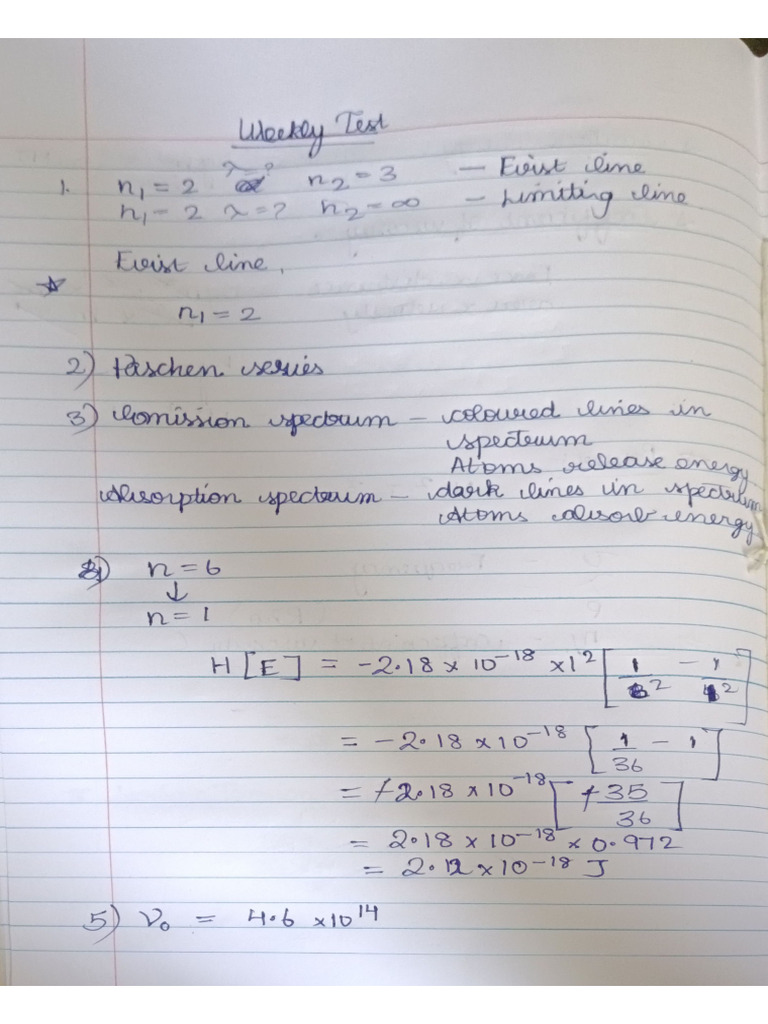 Weekly Test
1. n₁ = 2 λ = ? n₂ = 3 — First line
n₁ = 2 λ = ? n₂ = ∞ — Limiting line
First line,
☆
n₁ = 2
2) Paschen series
3) Emission spectrum – coloured lines in
spectrum
Atoms release energy
Absorption spectrum – dark lines in spectrum
Atoms absorb energy
n = 6
↓
n = 1
H [E] = -2.18 × 10⁻¹⁸ × 1² [1/6² - 1/1²]
= -2.18 × 10⁻¹⁸ [1/36 - 1]
= +2.18 × 10⁻¹⁸ [+35/36]
= 2.18 × 10⁻¹⁸ × 0.972
= 2.12 × 10⁻¹⁸ J
5) ν₀ = 4.6 × 10¹⁴